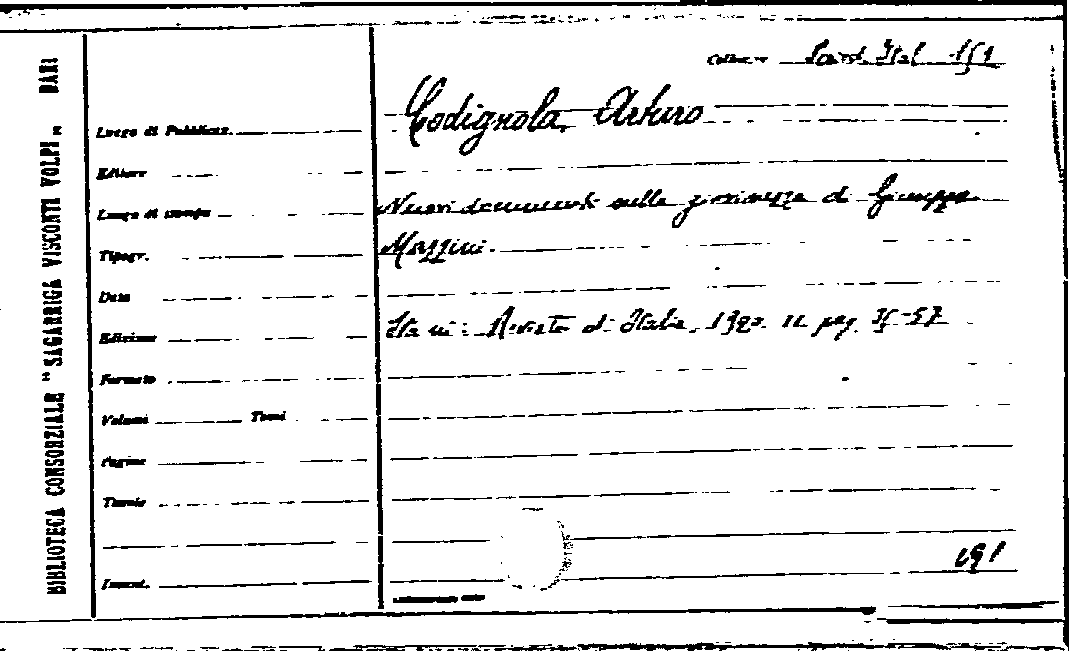 BIBLIOTECA CONSORZIALE "SAGARRIGA VISCONTI VOLPI" BARI
Collocaz.
Codignola, Arturo
Luogo di Pubblicaz.
Editore
Nuovi documenti sulla giovinezza di Giuseppe
Luogo di stampa
Mazzini.
Tipogr.
Data
Sta in: Rivista d'Italia, 19 II pag. 35-57
Edizione
Formato
Volumi Tomi
Pagine
Tavole
Invent.